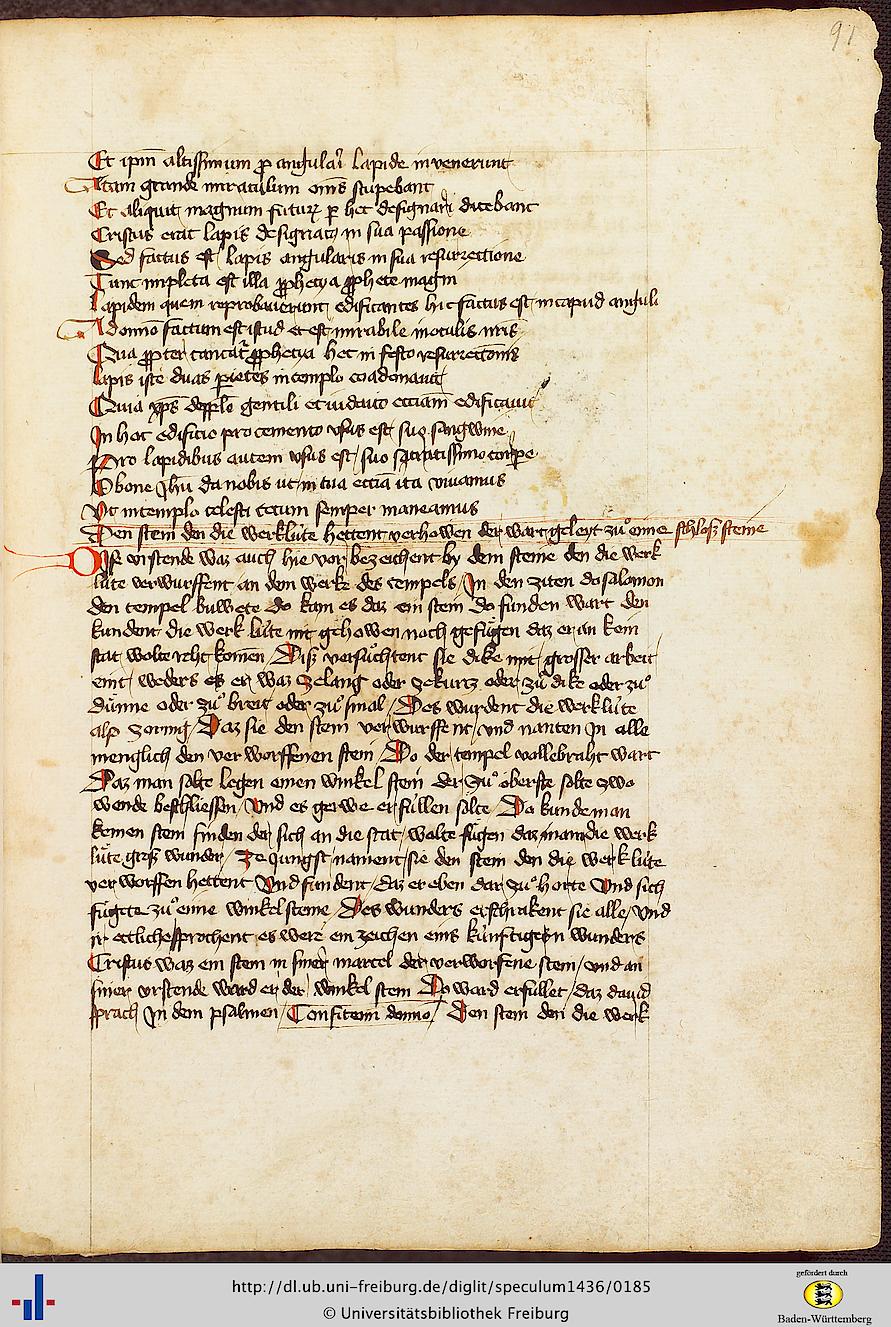 91
Et ipm altissimum p angulari lapide invenerunt
Itam grande miraculum oms stupebant
Et aliquit magnum futurꝝ p hec designari dicebant
Cristus erat lapis designatꝰ in sua passione
Sed factus est lapis angularis in sua resurrectione
Tunc impleta est illa prophecya prophete magni
Lapidem quem reprobaverunt edificantes hic factus est in capud anguli
A domino factum est istud et est mirabile in oculis nris
Qua propter cantatur prophecya hec in festo resurrectionis
Lapis iste duas parietes in templo coadonavit
Quia xps de pplo gentili et iudaico ecciam edificavit
In hoc edificio pro cemento usus est suo sangwine
Pro lapidibus autem usus est suo sacratissimo corpe
O bone Jhu da nobis ut in tua eccia ita vivamus
Ut in templo celesti tecum semper maneamus
Den stein den die werklúte hettent verhowen der wart geleyt zuͦ eime schlosz steine
Dise urstende waz auch hie vor bezeichent by dem steine den die werk
lúte verwurffent an dem werke des tempels / In den ziten do salomon
den tempel buwete do kam es daz ein stein do funden wart den
kundent die werk lúte nit gehowen noch gefúgen daz er an kein
stat wolte reht komen / Disz versuͦchtent sie dike mit grosser arbeit
eint weders es er waz ze lang oder ze kurtz oder zuͦ dike oder zuͦ
dúnne oder zuͦ breit oder zuͦ smal / Des wurdent die werk lúte
also zornig / Daz sie den stein verwurffent / und nanten In alle
menglich den verworffenen stein / Do der tempel vollebraht wart
Daz man solte legen einen winkel stein der zuͦ oberste solte zwo
wende beschliessen / und es gerwe erfúllen solte / Do kunde man
keinen stein finden der sich an die stat wolte fúgen daz nam die werk
lúte grosz wunder / Ze jungst nament sie den stein den die werk lúte
verworffen hettent Und fundent / daz er eben dar zuͦ horte Und sich
fúgete zuͦ eime winkel steine / Des wunders erschrakent sie alle / und
ir ettliche sprochent es were ein zeichen eins kúnftigen wunders
Cristus waz ein stein in siner martel der verworfene stein / und an
siner urstende ward er der winkel stein Do ward erfúllet / daz david
sprach In dem psalmen / Confitemi domino / Den stein den die werk
http://dl.ub.uni-freiburg.de/diglit/speculum1436/0185
© Universitätsbibliothek Freiburg
gefördert durch
Baden-Württemberg